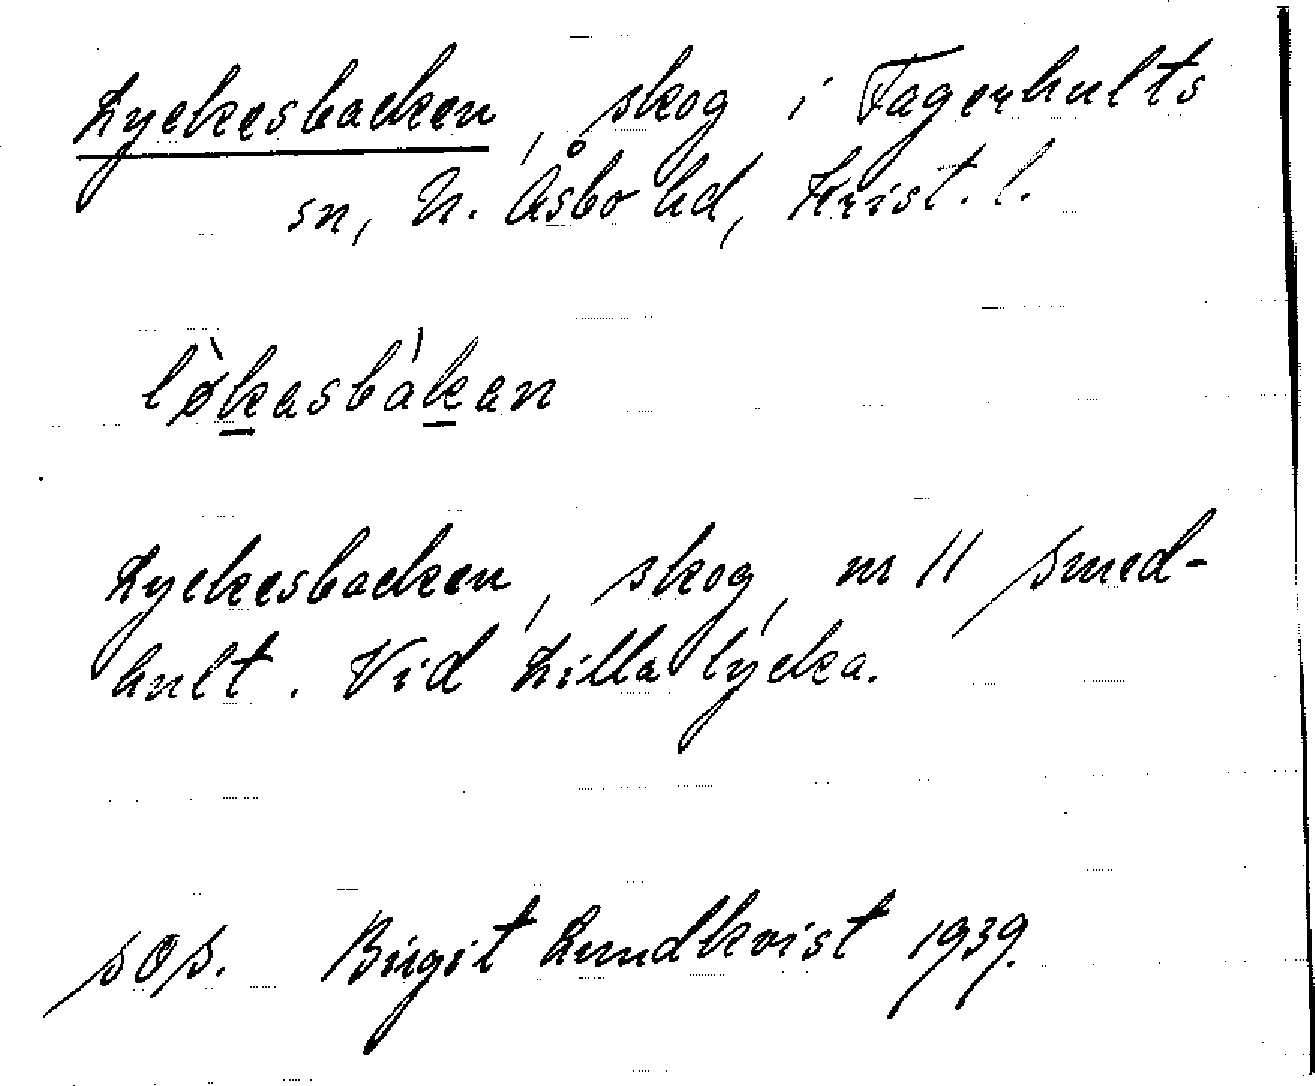 Lyckesbacken, skog i Fagerhults
sn, N. Åsbo hd, Krist. l.
lø̀kasbákan
Lyckesbacken, skog, nr 11 Smed-
hult. Vid Lilla lycka.
SOS. Birgit Lundkvist 1939.